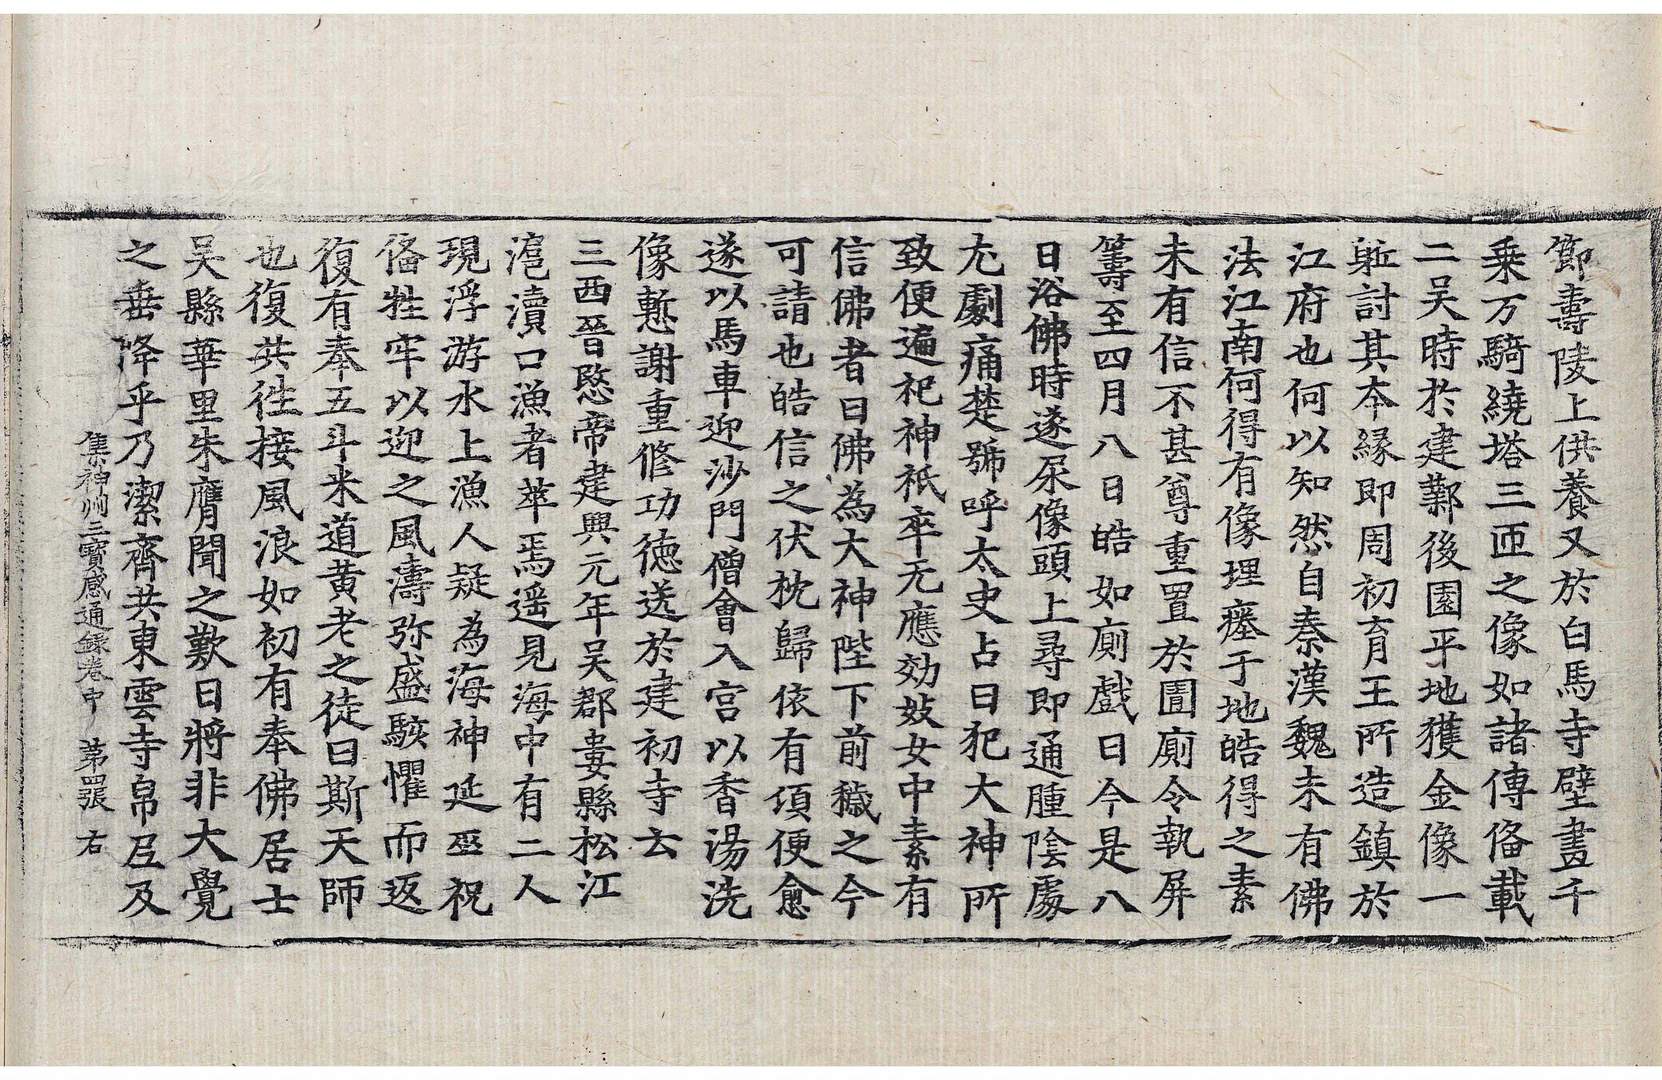 節壽陵上供養又於白馬寺壁畫千
乗万騎繞塔三匝之像如諸傳俻載
二吴時於建鄴後園平地獲金像一
軀討其夲縁即周初育王所造鎮於
江府也何以知然自秦漢魏未有佛
法江南何得有像埋瘞于地皓得之素
未有信不甚尊重置於圊廁令執屏
籌至四月八日皓如廁戲曰今是八
日浴佛時遂尿像頭上尋即通腫陰處
尤劇痛楚號呼太史占曰犯大神所
致便遍祀神祇卒无應効妓女中素有
信佛者曰佛為大神陛下前穢之今
可請也皓信之伏枕歸依有頃便愈
遂以馬車迎沙門僧會入宫以香湯洗
像慙謝重修功德送於建初寺云
三西晉愍帝建興元年吴郡婁縣松江
滬瀆口漁者萃焉遥見海中有二人
現浮游水上漁人疑為海神延巫祝
俻牲牢以迎之風濤弥盛駭懼而返
復有奉五斗米道黄老之徒曰斯天師
也復共徃接風浪如初有奉佛居士
吴縣華里朱膺聞之歎曰將非大覺
之垂降乎乃潔齊共東雲寺帛尼及
集神州三寳感通録卷中 苐四張 右